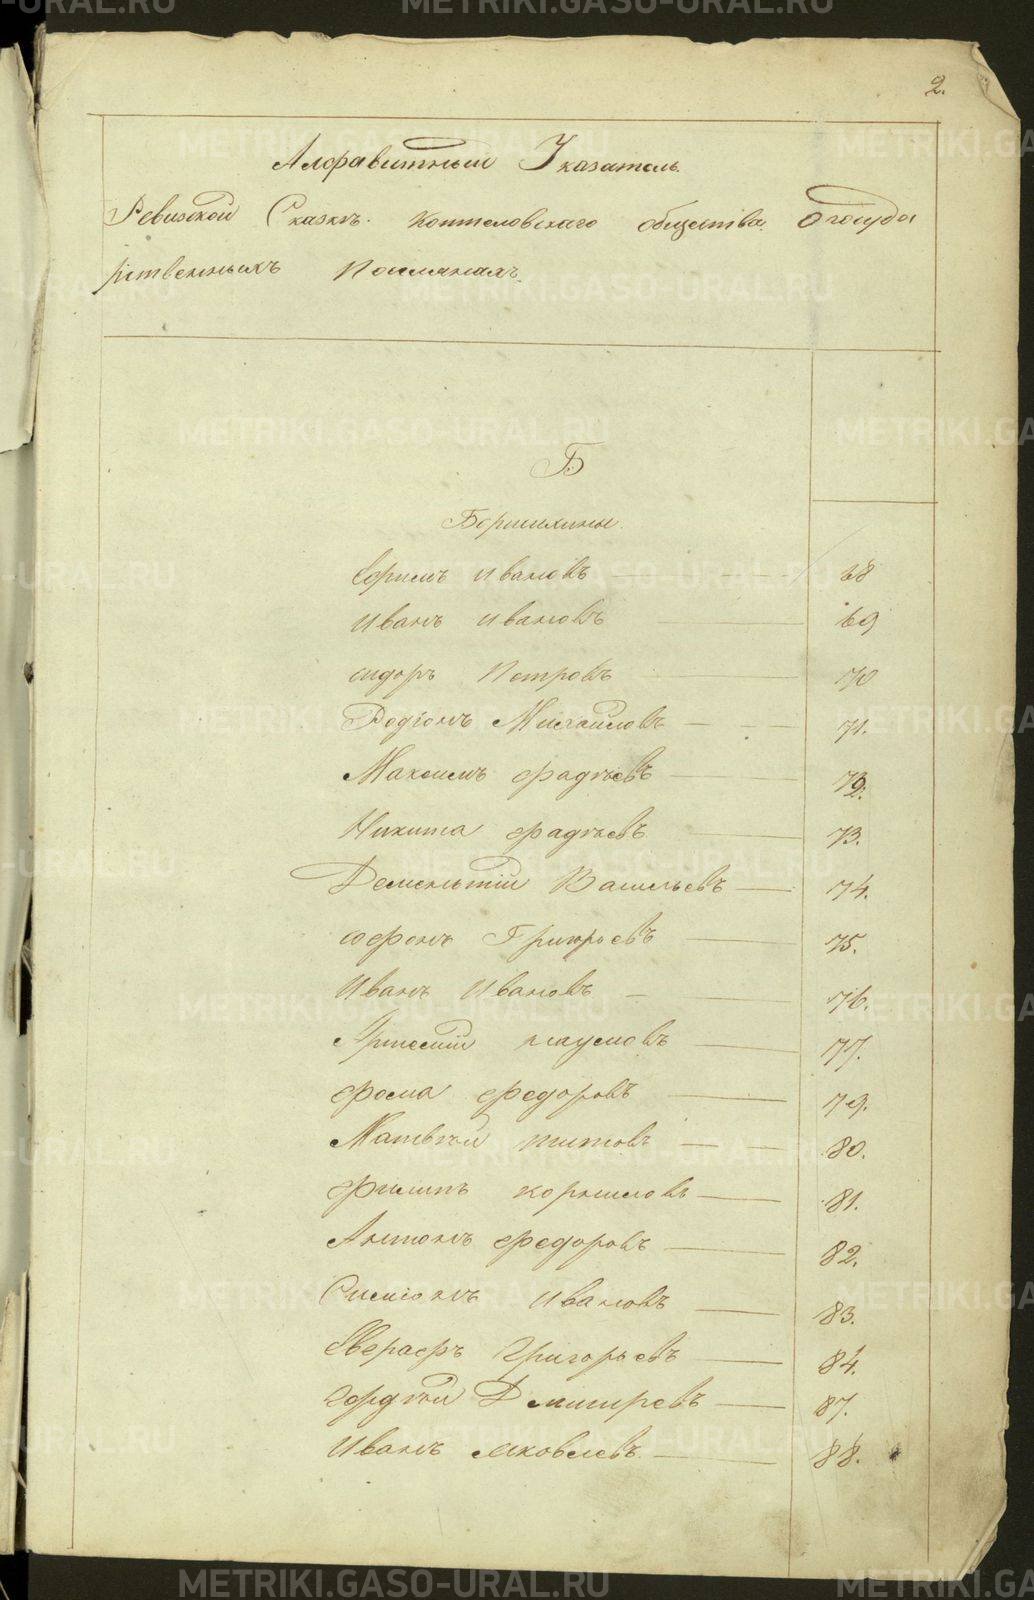 2.
Алфавитный Указатель
Ревизской Сказкъ Коптеловскаго общества о госуда
рственныхъ Поселянахъ
Б
Боршихины.
Ефимъ Ивановъ 68
Иванъ Ивановъ 69
Сидоръ Петровъ 70
Родіонъ Михайловъ 71.
Максимъ Фадѣевъ 72.
Никита Фадѣевъ 73.
Дементій Васильевъ 74.
Софонъ Григорьевъ 75.
Иванъ Ивановъ 76.
Артемій Наумовъ 77.
Фома Федоровъ 79.
Матвѣй Титовъ 80.
Филипъ Корниловъ 81.
Антонъ Федоровъ 82.
Симіонъ Ивановъ 83.
Евграфъ Григорьевъ 84.
Гордѣй Дмитревъ 87.
Иванъ Яковлевъ 88.
METRIKI.GASO-URAL.RU